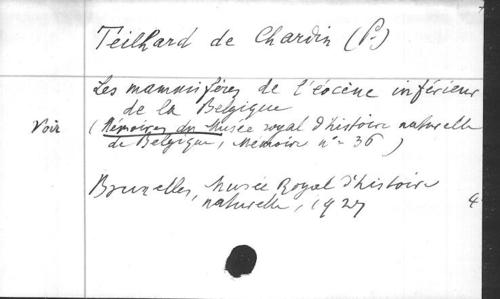 Teilhard de Chardin (P.)
Les mammifères de l'éocène inférieur
de la Belgique
Voir (Mémoires du Musée royal d'histoire naturelle
de Belgique, Mémoire n° 36)
Bruxelles, Musée Royal d'histoire
naturelle, 1927
4°